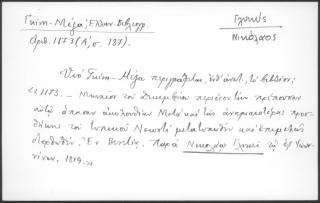 Γκίνη - Μέξα, Ελλην. Βιβλιογρ.
Αριθ. 1173 (Α', σ. 187).
Γλυκύς
Νικόλαος
Υπό Γκίνη - Μέξα περιγράφεται, υπ' αριθ., το βιβλίον:
«1173. - Μηναίον του Δεκεμβρίου περιέχον την πρέπουσαν
αυτώ άπασαν ακολουθίαν Μετά και της αναγκαιοτέρας προσ-
θήκης του τυπικού Νεωστί μετατυπωθέν και επιμελώς
διορθωθέν. Εν Βενετία. Παρά Νικολάω Γλυκεί τω εξ Ιωαν-
νίνων. 1819.»